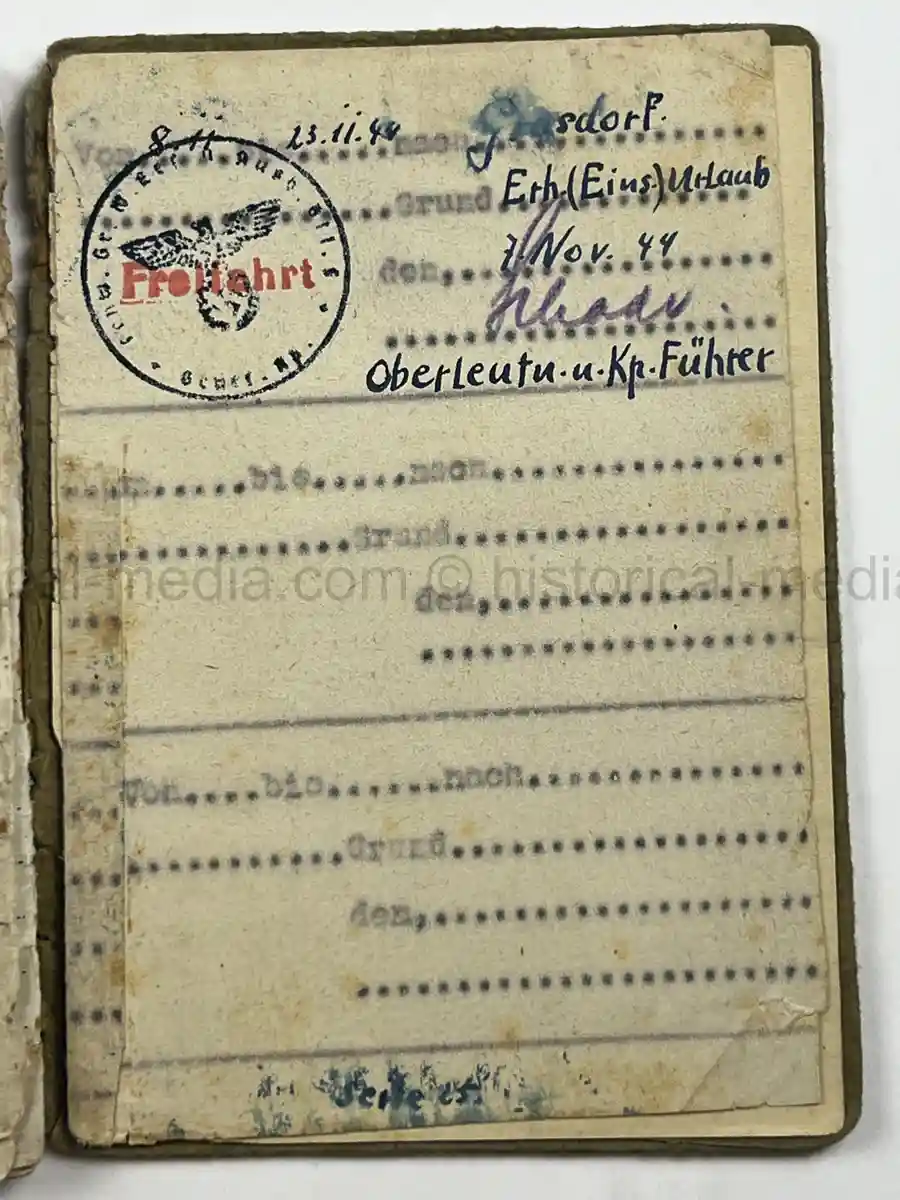 Von 8.11 23.11.44 nach sdorf.
Grund Erh.(Eins.)Urlaub
Freifahrt
den, 7. Nov. 44
Oberleutn.u.Kp.Führer
bis nach
Grund
cal-media.com © historical-media
den,
Von bis nach
Grund
den,
Seite 15.